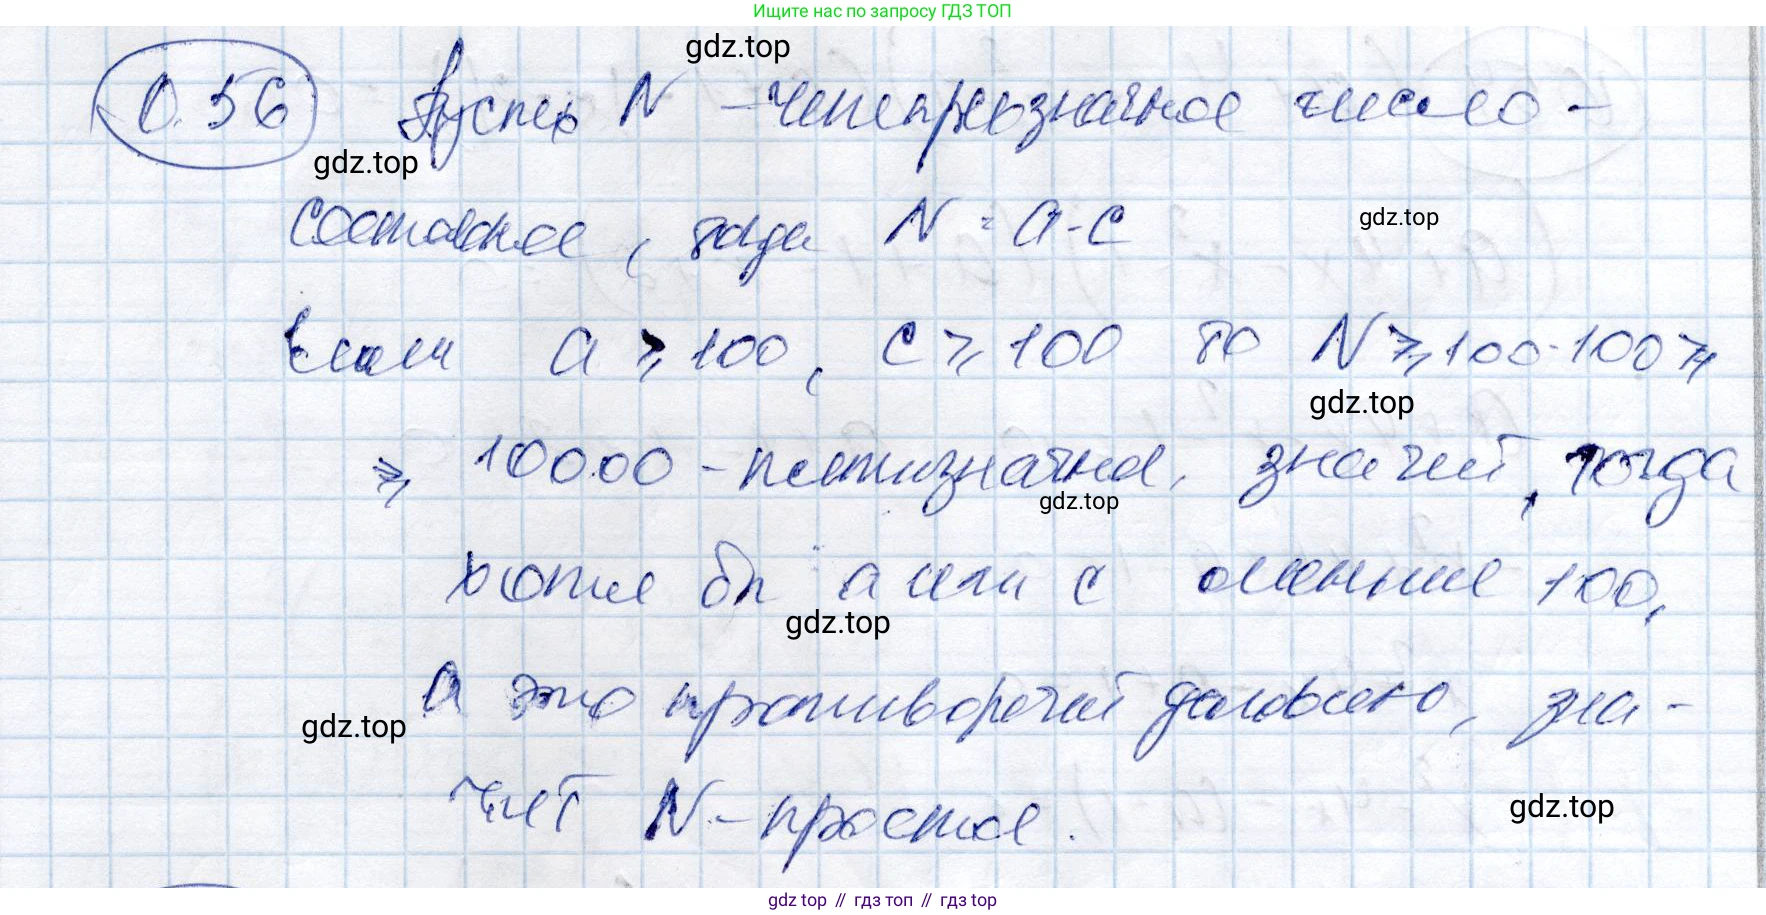 Ищите нас по запросу ГДЗ ТОП
gdz.top
0.56 Пусть N - четырехзначное число -
gdz.top
составное, тогда N = a · c
gdz.top
Если a ⩾ 100, c ⩾ 100 то N ⩾ 100 · 100 ⩾
gdz.top
⩾ 10000 - пятизначное, значит, тогда
gdz.top
хотя бы a или c меньше 100,
gdz.top
а это противоречит условию, зна-
gdz.top
чит N - простое.
gdz.top
gdz top // гдз топ // гдз top